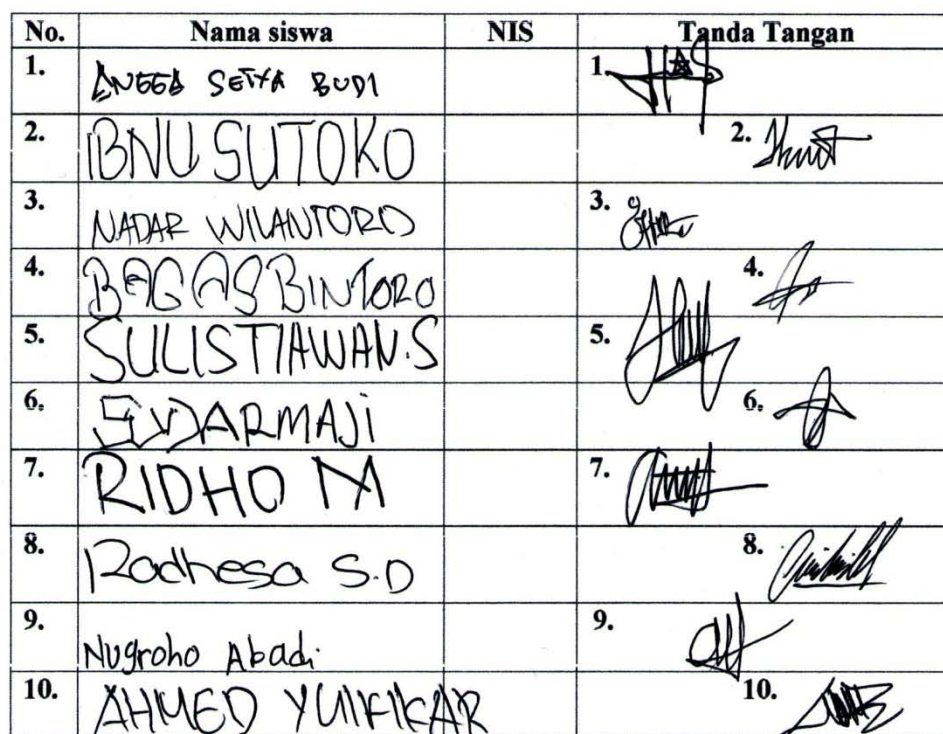 No. Nama siswa NIS Tanda Tangan
1. ANGGA SETYA BUDI 1.
2. IBNU SUTOKO 2.
3. NADAR WILANTORO 3.
4. BAGAS BINTORO 4.
5. SULISTIAWAN.S 5.
6. SUDARMAJI 6.
7. RIDHO M 7.
8. Radhesa S.D 8.
9. Nugroho Abadi 9.
10. AHMED 10.